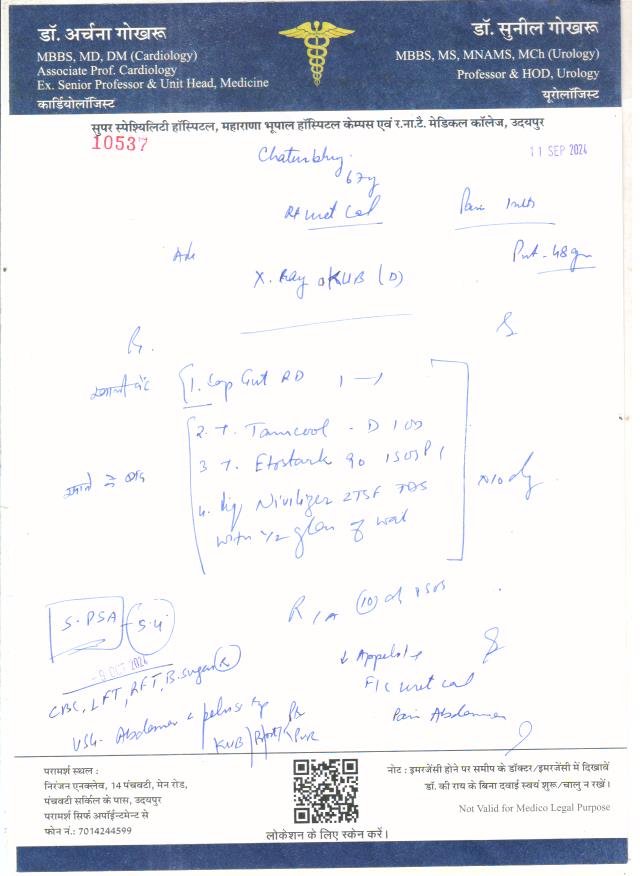 डॉ. अर्चना गोखरू
MBBS, MD, DM (Cardiology)
Associate Prof. Cardiology
Ex. Senior Professor & Unit Head, Medicine
कार्डियोलॉजिस्ट
डॉ. सुनील गोखरू
MBBS, MS, MNAMS, MCh (Urology)
Professor & HOD, Urology
यूरोलॉजिस्ट
सुपर स्पेश्यिलिटी हॉस्पिटल, महाराणा भूपाल हॉस्पिटल केम्पस एवं र.ना.टै. मेडिकल कॉलेज, उदयपुर
10537
11 SEP 2024
67y
X. Ray KUB (D)
Rx.
खाली पेट
1. Cap Gut RD 1 — 1
2. T. Tamcool - D 1 OD
3 T. Etostark 90 1 SOS
खाने के बाद
4. Nivilizer 2TSF TDS
with 1/2 glass of wat
x 10 day
S-PSA
5.4
9 OCT 2024
CBC, LFT, RFT, B.sugar (R)
USG- Abdomen & pelvis
KUB / Prost / PVR
Pain Abdomen
परामर्श स्थल :
निरंजन एनक्लेव, 14 पंचवटी, मेन रोड,
पंचवटी सर्किल के पास, उदयपुर
परामर्श सिर्फ अपॉईन्टमेन्ट से
फोन नं.: 7014244599
लोकेशन के लिए स्केन करें।
नोट : इमरजेंसी होने पर समीप के डॉक्टर/इमरजेंसी में दिखावें
डॉ. की राय के बिना दवाई स्वयं शुरू/चालु न रखें।
Not Valid for Medico Legal Purpose